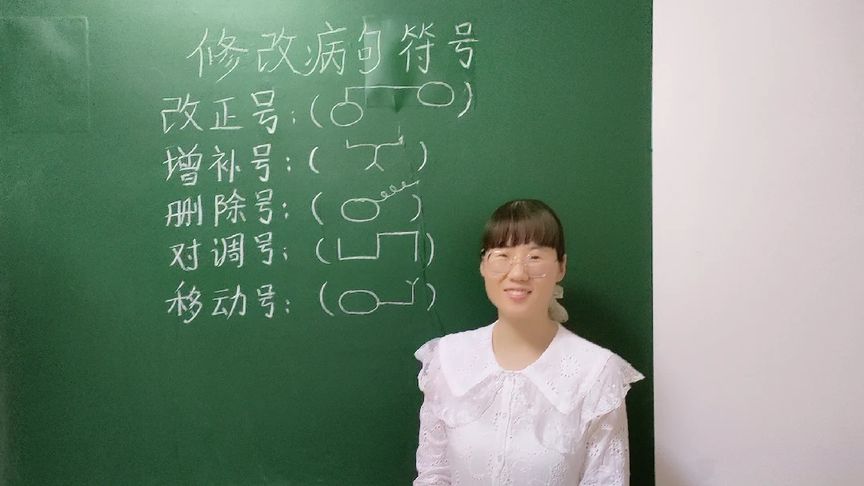 修改病句符号
改正号：（ ）
增补号：（ ）
删除号：（ ）
对调号：（ ）
移动号：（ ）